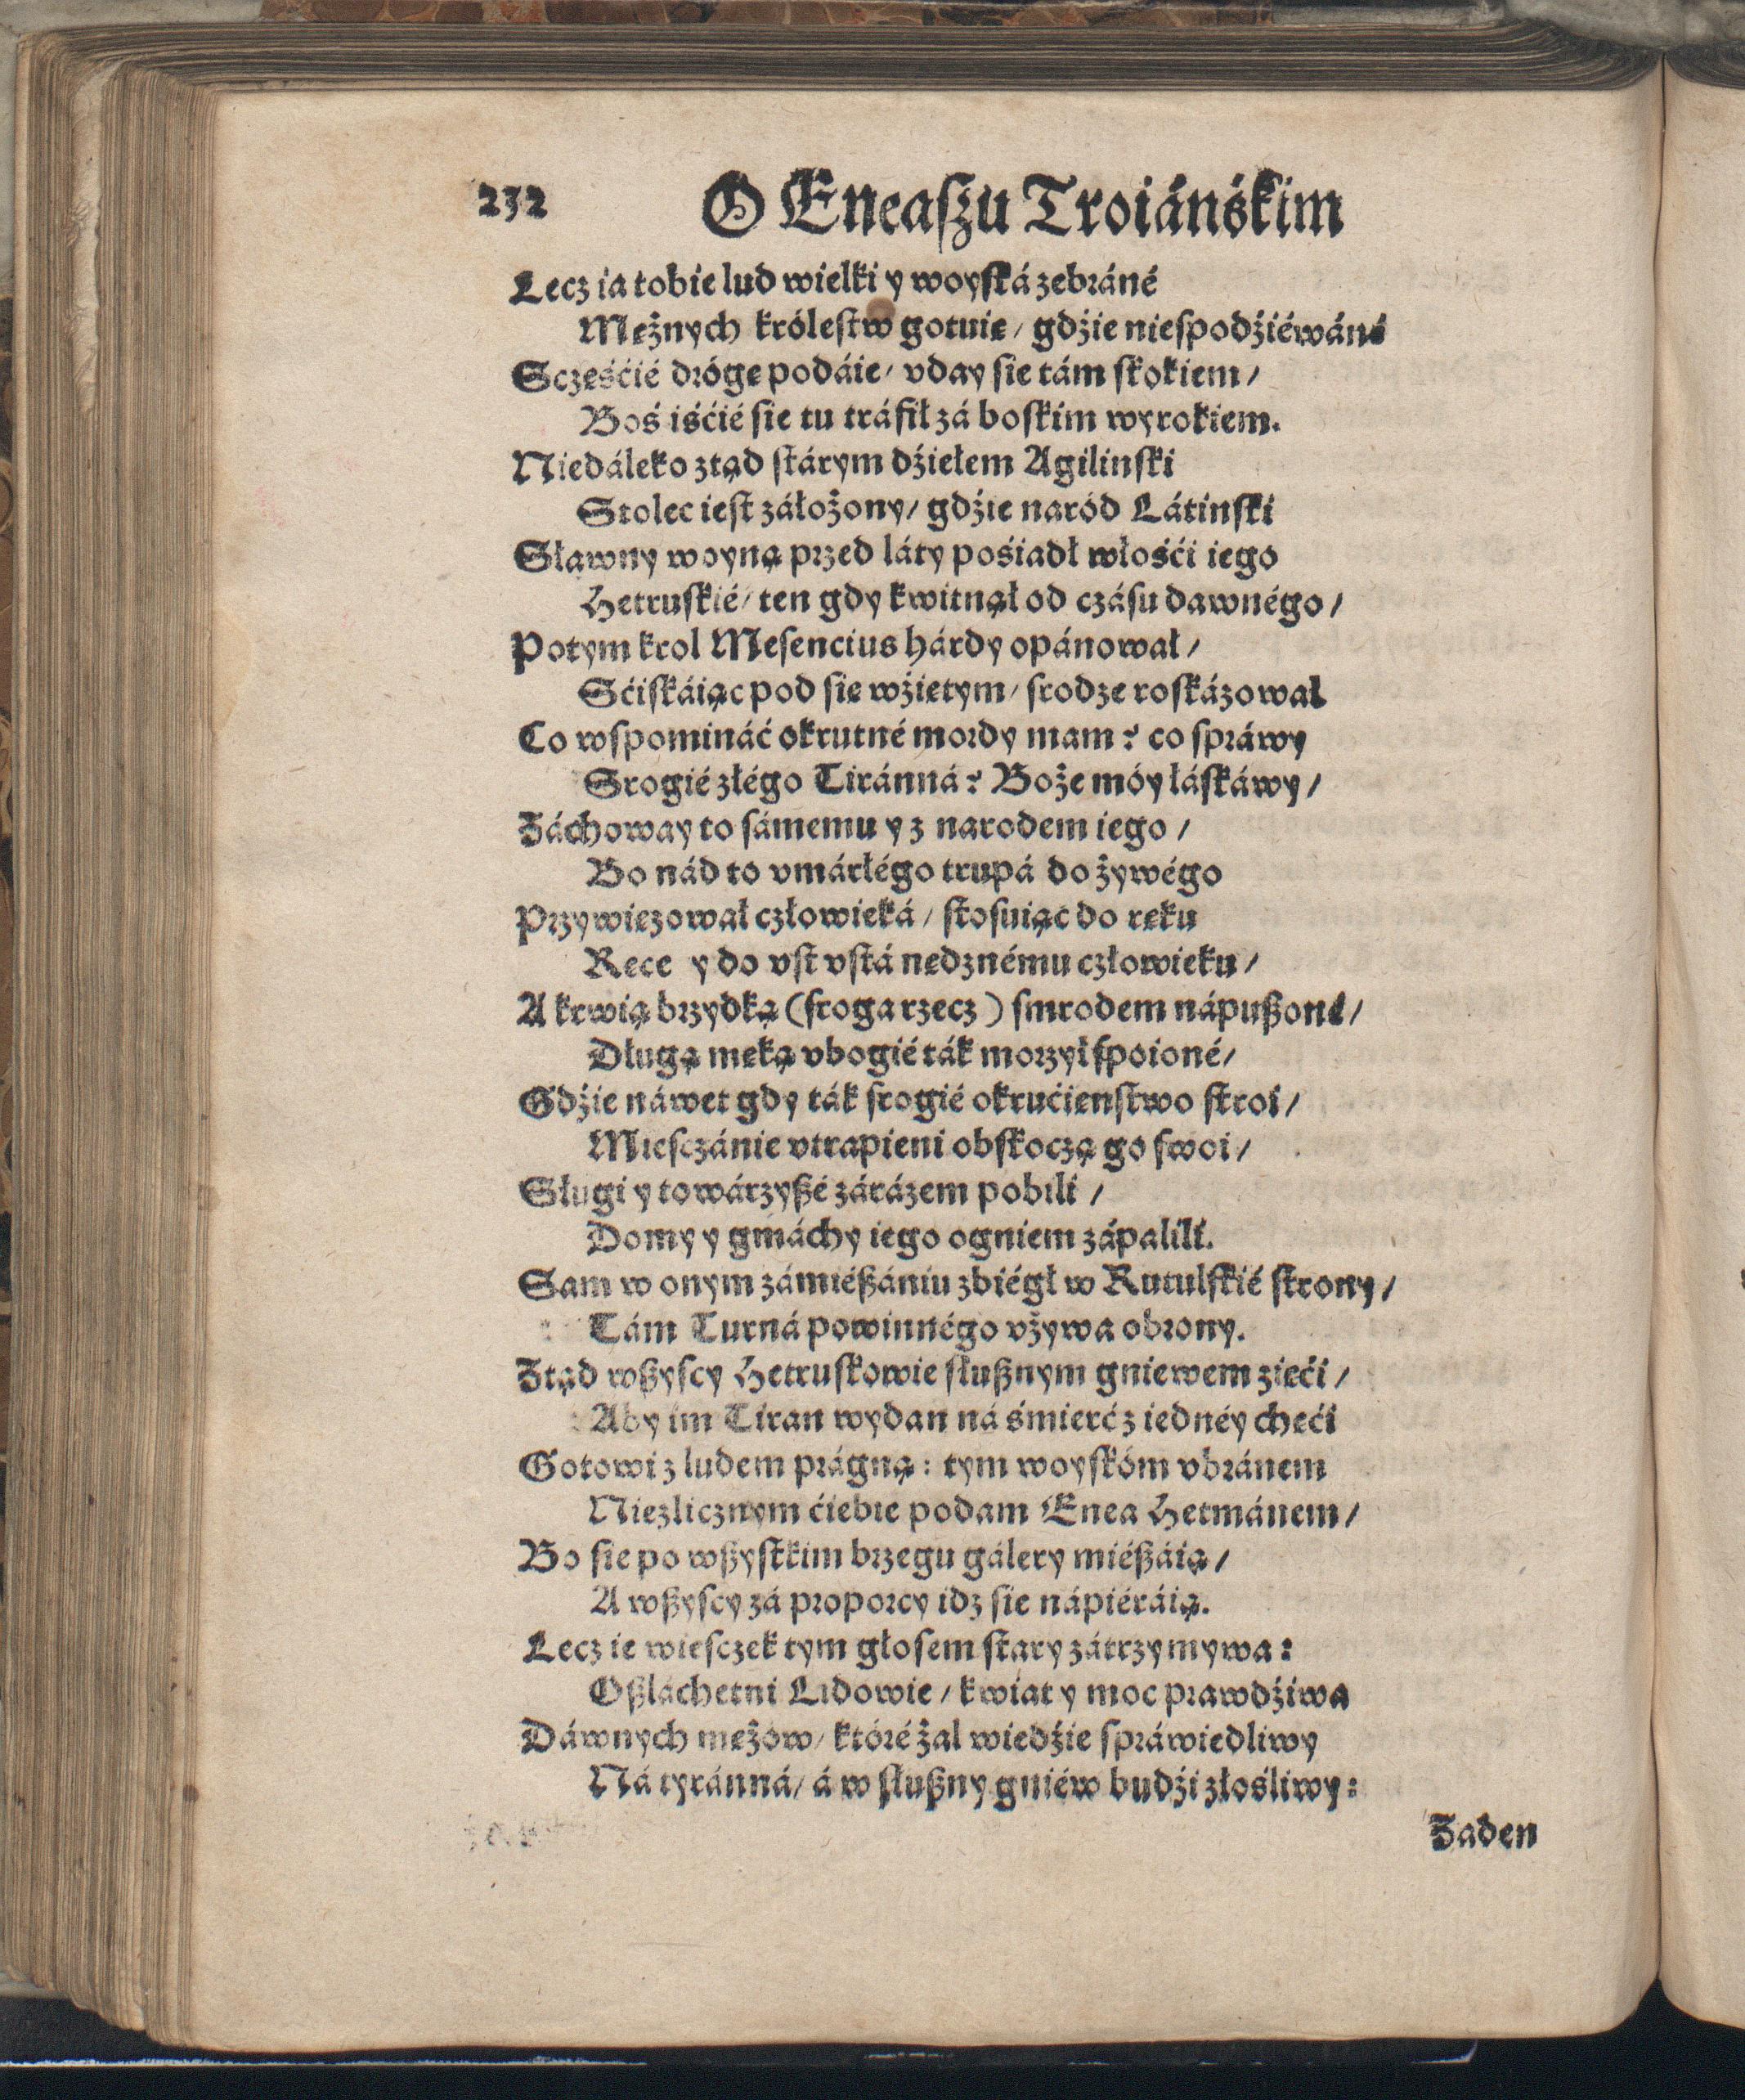 232 O Eneaſzu Troiáńſkim
Lecz ia tobie lud wielki y woyſká zebráné
Mężnych króleſtw gotuię / gdźie nieſpodźiéwáné
Sczęśćié drógę podáie / vday ſię tám ſkokiem /
Boś iśćié ſię tu tráfił zá boſkim wyrokiem.
Niedáleko ztąd ſtárym dźiełem Agilinſki
Stolec ieſt záłożony / gdźie naród Látinſki
Sławny woyną przed láty pośiadł włośći iego
Hetruſkié / ten gdy kwitnął od czáſu dawnégo /
Potym krol Meſencius hárdy opánował /
Sćiſkáiąc pod ſię wźiętym / ſrodze roſkázował
Co wſpomináć okrutné mordy mam? co ſpráwy
Srogié złégo Tiránná? Boże móy łáſkáwy /
Záchoway to ſámemu y z narodem iego /
Bo nád to vmárłégo trupá do żywégo
Przywięzował człowieká / ſtoſuiąc do ręku
Ręce y do vſt vſtá nędznému człowieku /
A krwią brzydką (ſroga rzecz) ſmrodem nápuſzoné /
Długą męką vbogié ták morzył ſpoioné /
Gdźie náwet gdy ták ſrogié okrućienſtwo ſtroi /
Mieſczánie vtrapieni obſkoczą go ſwoi /
Sługi y towárzyſzé zárázem pobili /
Domy y gmáchy iego ogniem zápalili.
Sam w onym zámiéſzániu zbiégł w Rutulſkié ſtrony /
Tám Turná powinnégo vżywa obrony.
Ztąd wſzyſcy Hetruſkowie ſłuſznym gniewem zięći /
Aby im Tiran wydan ná śmierć z iednéy chęći
Gotowi z ludem prágną: tym woyſkóm vbránem
Niezlicznym ćiebie podam Enea Hetmánem /
Bo ſię po wſzyſtkim brzegu gálery miéſzáią /
A wſzyſcy zá proporcy idz ſię nápiéráią.
Lecz ie wieſczek tym głoſem ſtary zátrzymywa:
Oſzláchetni Lidowie / kwiat y moc prawdźiwa
Dáwnych mężów / któré żal wiedźie ſpráwiedliwy
Ná tyránná / á w ſłuſzny gniéw budźi złośliwy:
Zaden